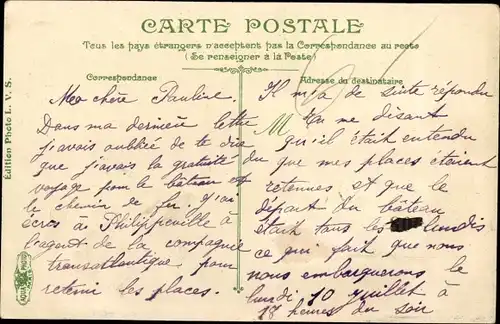 CARTE POSTALE
Tous les pays étrangers n'acceptent pas la Correspondance au recto
(Se renseigner à la Poste)
Correspondance
Adresse du destinataire
Édition Photo L. V. S.
Ma chère Pauline
Dans ma dernière lettre
j'avais oubliée de te dire
que j'avais la gratuité du
voyage pour le bâteau et
le chemin de fer. J'ai
écris à Philippeville à
l'agent de la compagnie
transatlantique pour
retenir les places.
Il m'a de suite répondu
En me disant
qu'il était entendu
que mes places étaient
retenues et que le
départ du bâteau
était tous les lundis
ce qui fait que nous
nous embarquerons le
lundi 10 juillet à
18 heures du soir